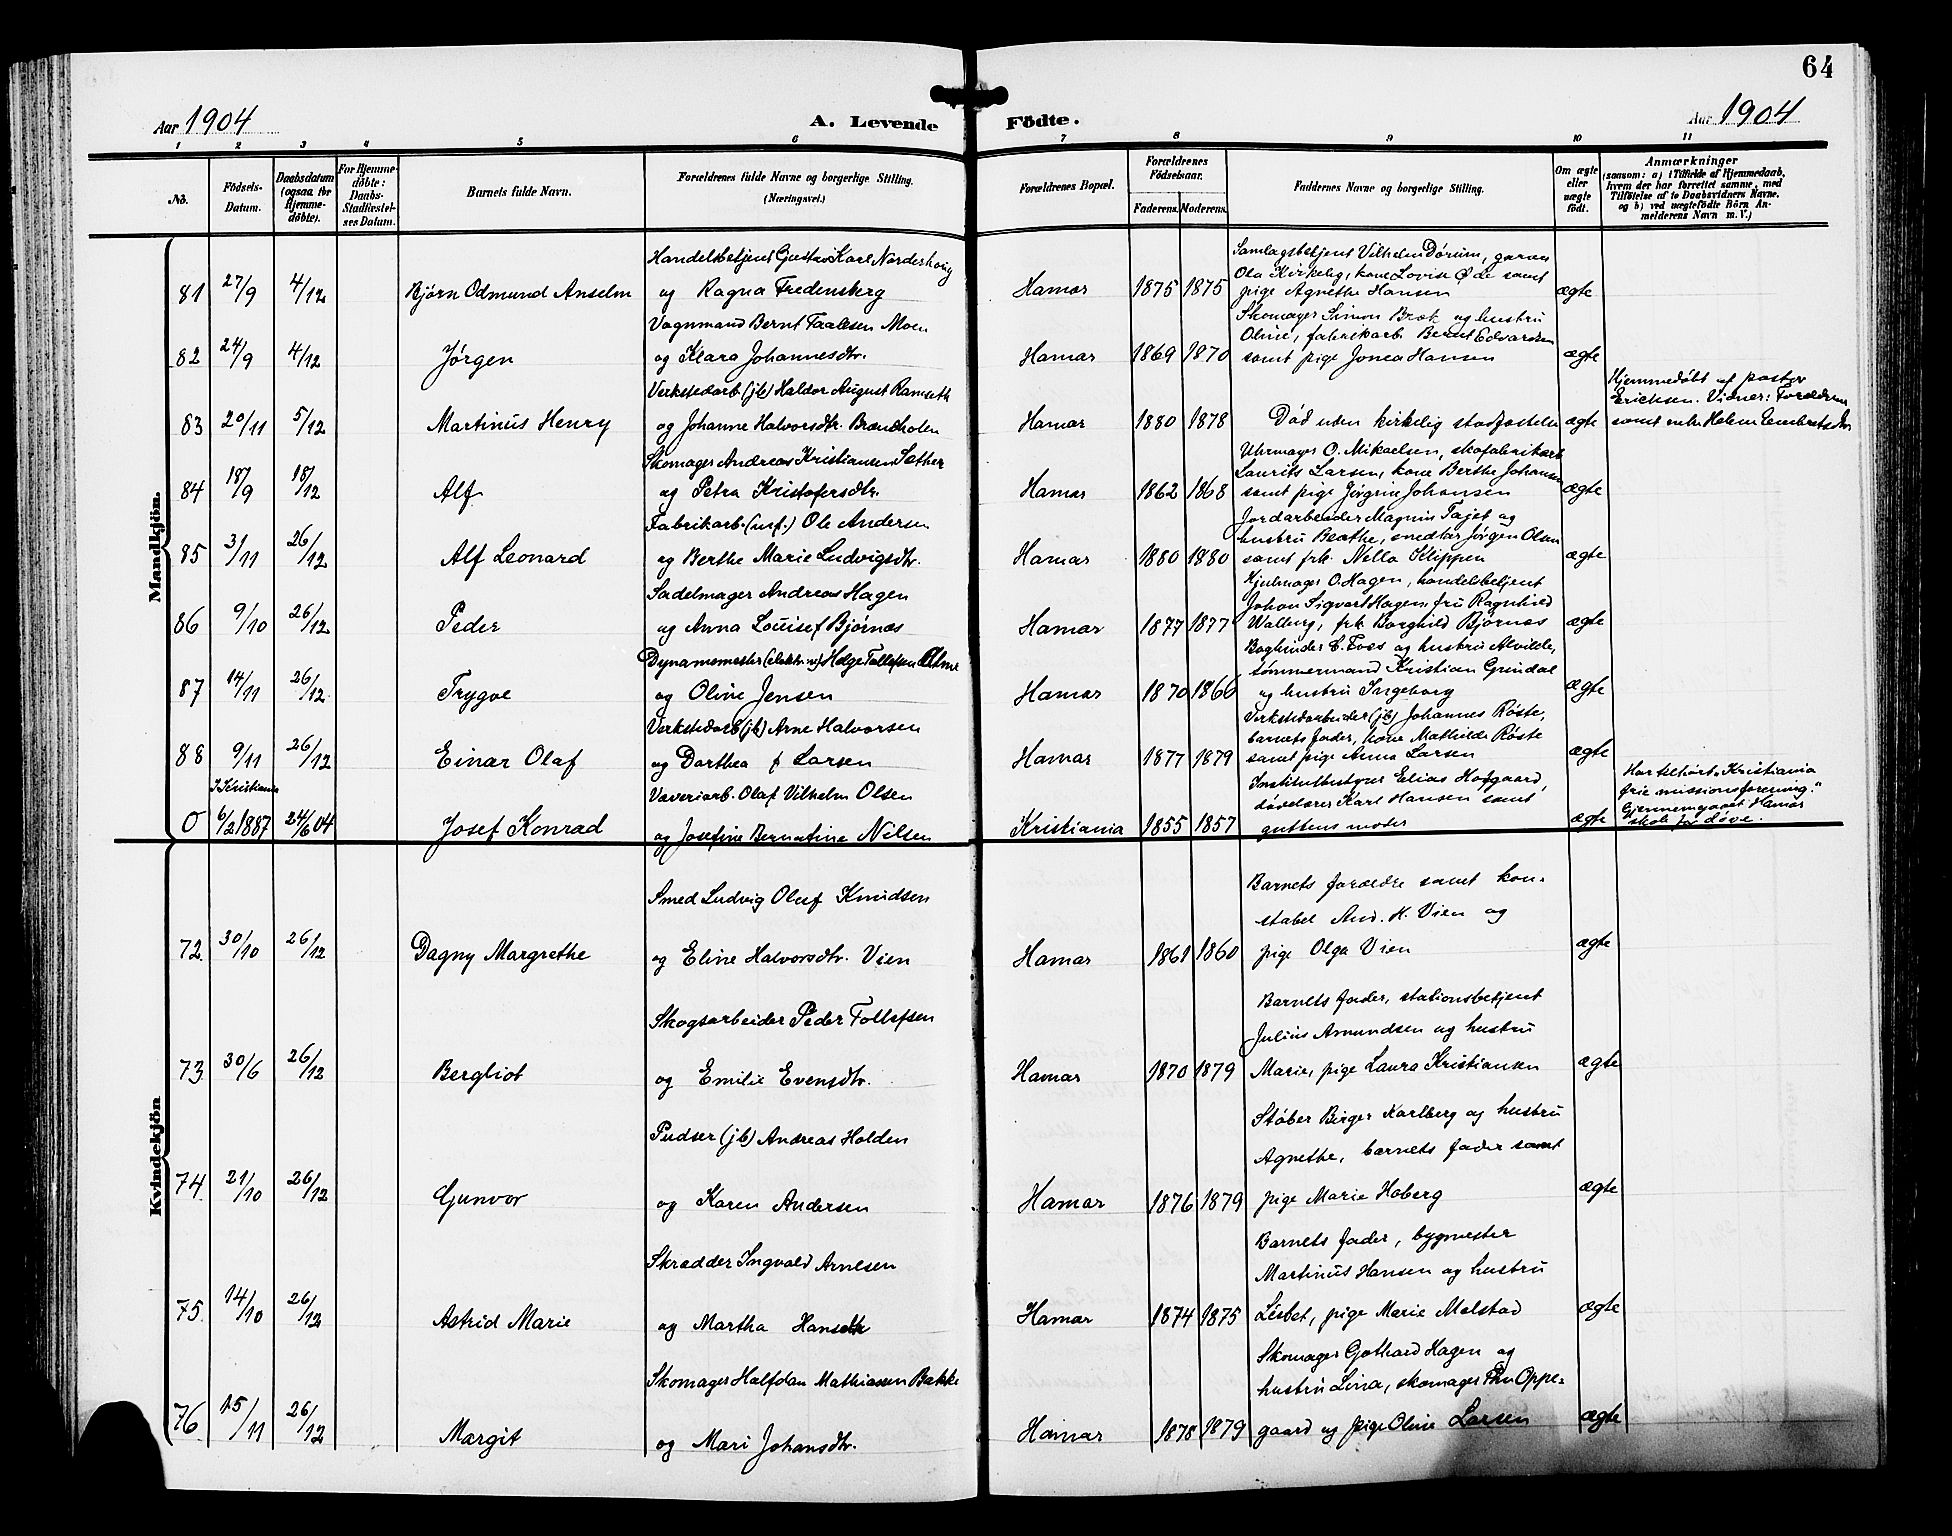 64
Aar 1904
A. Levende Födte.
Aar 1904
1 2 3 4 5 6 7 8 9 10 11
No.
Födsels-Datum.
Daabsdatum (ogsaa for Hjemme-döbte).
For Hjemme-döbte: Daabs-Stadfæstel-ses Datum.
Barnets fulde Navn.
Forældrenes fulde Navne og borgerlige Stilling.
(Næringsvei.)
Forældrenes Bopæl.
Forældrenes Födselsaar.
Faderens. Moderens.
Faddernes Navne og borgerlige Stilling.
Om ægte eller uægte födt.
Anmærkninger
(saasom: a) i Tilfælde af Hjemmedaab,
hvem der har forrettet samme, med
Tilföielse af to Daabsvidners Navne,
og b) ved uægtefödte Börn An-
melderens Navn m. V.)
Mandkjön.
Handelsbetjent Gustav Karl Norderhoug
Samlagsbetjent Vilhelm Dørum, garver
Ola Kirkelig, kone Lovise Øde samt
81 27/9 4/12 Bjørn Odmund Anselm og Ragna Fredensberg Hamar 1875 1875 pige Agnethe Hansen ægte
Vognmand Bernt Taalesen Moen
Skomager Simon Bræk og hustru
Oline, fabrikarb. Bernt Edvardsen
82 24/9 4/12 Jørgen og Klara Johannesdtr. Hamar 1869 1870 samt pige Jonea Hansen ægte
Verkstedarb (jb) Haldor August Ramseth
Hjemmedøbt af pastor
Ericksen. Vidner: Forældrene
83 20/11 5/12 Martinus Henry og Johanne Halvorsdtr. Brændholen Hamar 1880 1878 Død uden kirkelig stadfæstelse ægte samt enke Helene Eembretsdtr
Skomager Andreas Kristiansen Sæther
Uhrmager O. Mikaelsen, skofabrikarb
Laurits Larsen, kone Berthe Johansen
84 18/9 18/12 Alf og Petra Kristofersdtr. Hamar 1862 1868 samt pige Jørgine Johansen ægte
Fabrikarb. (usf.) Ole Andersen
Jordarbeider Magnus Tajet og
hustru Beathe, smedlær Jørgen Olsen
85 3/11 26/12 Alf Leonard og Berthe Marie Ludvigsdtr. Hamar 1880 1880 samt frk. Nella Klippen ægte
Sadelmager Andreas Hagen
Hjulmager O. Hagen, handelsbetjent
Johan Sigvart Hagen, fru Ragnhild
86 9/10 26/12 Peder og Anna Louise f Bjørnæs Hamar 1877 1877 Walberg, frk Borghild Bjørnæs ægte
Dynamomester (elektr. v) Helge Tollefsen
Bogbinder C. Foss og hustru Alvilde,
tømmermand Kristian Grindal
87 14/11 26/12 Trygve og Oline Jensen Hamar 1870 1866 og hustru Ingeborg ægte
Verkstedarb (jb) Arne Halvorsen
Verkstedarbeider (jb) Johannes Røste,
barnets fader, kone Mathilde Røste
88 9/11 26/12 Einar Olaf og Dorthea f Larsen Hamar 1877 1879 samt pige Anna Larsen ægte
I Kristiania
Væveriarb. Olaf Vilhelm Olsen
Institutbestyrer Elias Hofgaard,
døvelærer Karl Hansen samt
Har tilhørt "Kristiania
frie missionsforening."
Gjennemgaaet Hamar
0 6/2 1887 24/6 04 Josef Konrad og Josefine Bernatine Nilsen Kristiania 1855 1857 guttens moder ægte skole for døve.
Kvindekjön
Smed Ludvig Oluf Knudsen
Barnets forældre samt kon-
stabel And. H. Vien og
72 30/10 26/12 Dagny Margrethe og Eline Halvorsdtr. Vien Hamar 1861 1860 pige Olga Vien ægte
Skogsarbeider Peder Tollefsen
Barnets fader, stationsbetjent
Julius Amundsen og hustru
73 30/6 26/12 Bergliot og Emilie Evensdtr. Hamar 1870 1879 Marie, pige Laura Kristiansen ægte
Pudser (jb) Andreas Holden
Støber Birger Karlberg og hustru
Agnethe, barnets fader samt
74 21/10 26/12 Gunvor og Karen Andersen Hamar 1876 1879 pige Marie Hoberg ægte
Skrædder Ingvald Arnesen
Barnets fader, bygmester
Martinus Hansen og hustru
75. 14/10 26/12 Astrid Marie og Martha Hansdtr Hamar 1874 1875 Lisbet, pige Marie Melstad ægte
Skomager Halfdan Mathiassen Bakke
Skomager Gothard Hagen og
hustru Lina, skomager Oppe-
76 15/11 26/12 Margit og Mari Johansdtr. Hamar 1878 1879 gaard og pige Oline Larsen ægte